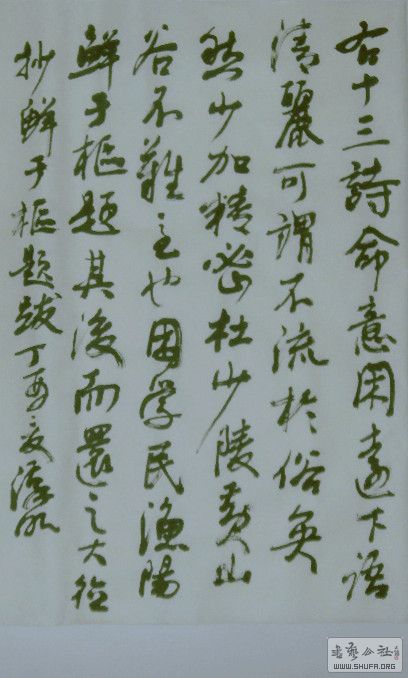 右十三詩命意閑遠下語
清麗可謂不流於俗矣
然少加精密杜少陵黃山
谷不難至也困學民漁陽
鮮于樞題其後而還之大德
抄鮮于樞題跋丁酉夏
書藝公社
WWW.SHUFA.ORG